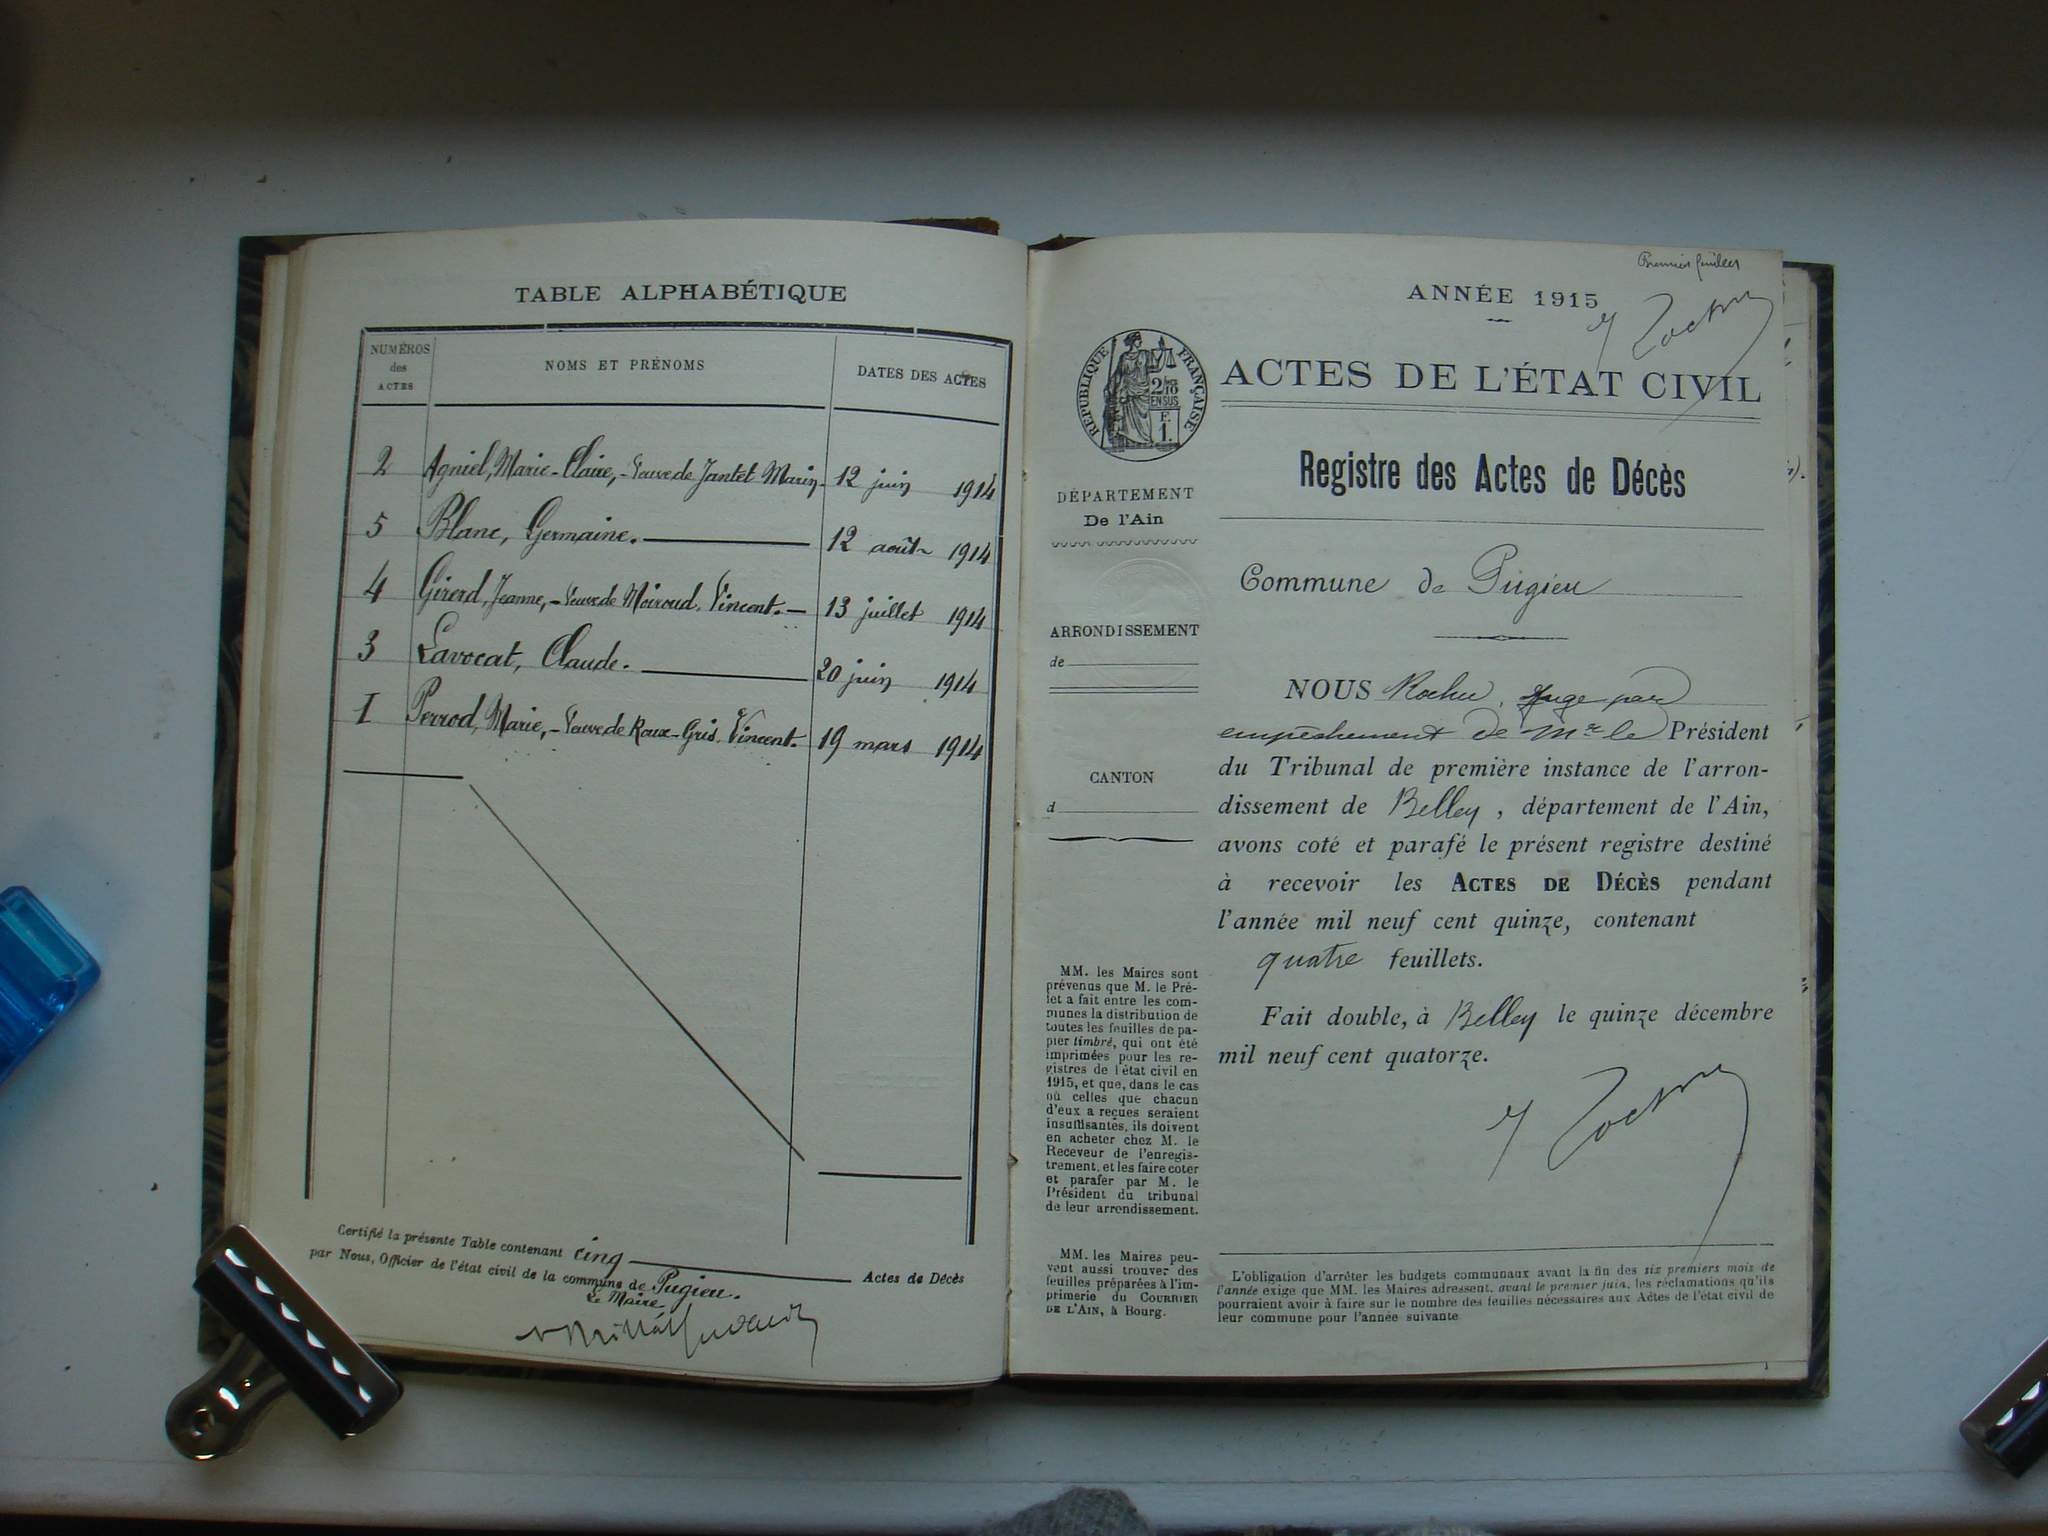 TABLE ALPHABÉTIQUE
NUMÉROS des ACTES NOMS ET PRÉNOMS DATES DES ACTES
2 Agniel, Marie-Claire, - Veuve de Jantet Marin - 12 juin 1914
5 Blanc, Germaine. 12 août 1914
4 Girerd, Jeanne, - Veuve de Moiroud, Vincent. - 13 juillet 1914
3 Lavocat, Claude. 20 juin 1914
1 Perrod, Marie, - Veuve de Roux-Gris, Vincent. 19 mars 1914
Certifié la présente Table contenant cinq Actes de Décès
par Nous, Officier de l'état civil de la commune de Pugieu.
Le Maire
Premier feuillet
ANNÉE 1915
RÉPUBLIQUE FRANÇAISE
2/10 EN SUS
F. 1.
ACTES DE L'ÉTAT CIVIL
Registre des Actes de Décès
DÉPARTEMENT
De l'Ain
ARRONDISSEMENT
de
CANTON
d
MM. les Maires sont
prévenus que M. le Pré-
fet a fait entre les com-
munes la distribution de
toutes les feuilles de pa-
pier timbré, qui ont été
imprimées pour les re-
gistres de l'état civil en
1915, et que, dans le cas
où celles que chacun
d'eux a reçues seraient
insuffisantes, ils doivent
en acheter chez M. le
Receveur de l'enregis-
trement, et les faire coter
et parafer par M. le
Président du tribunal
de leur arrondissement.
MM. les Maires peu-
vent aussi trouver des
feuilles préparées à l'im-
primerie du COURRIER
DE L'AIN, à Bourg.
Commune de Pugieu
NOUS juge par
empêchement de Mr le Président
du Tribunal de première instance de l'arron-
dissement de Belley, département de l'Ain,
avons coté et parafé le présent registre destiné
à recevoir les ACTES DE DÉCÈS pendant
l'année mil neuf cent quinze, contenant
quatre feuillets.
Fait double, à Belley le quinze décembre
mil neuf cent quatorze.
L'obligation d'arrêter les budgets communaux avant la fin des six premiers mois de
l'année exige que MM. les Maires adressent, avant le premier juin, les réclamations qu'ils
pourraient avoir à faire sur le nombre des feuilles nécessaires aux Actes de l'état civil de
leur commune pour l'année suivante